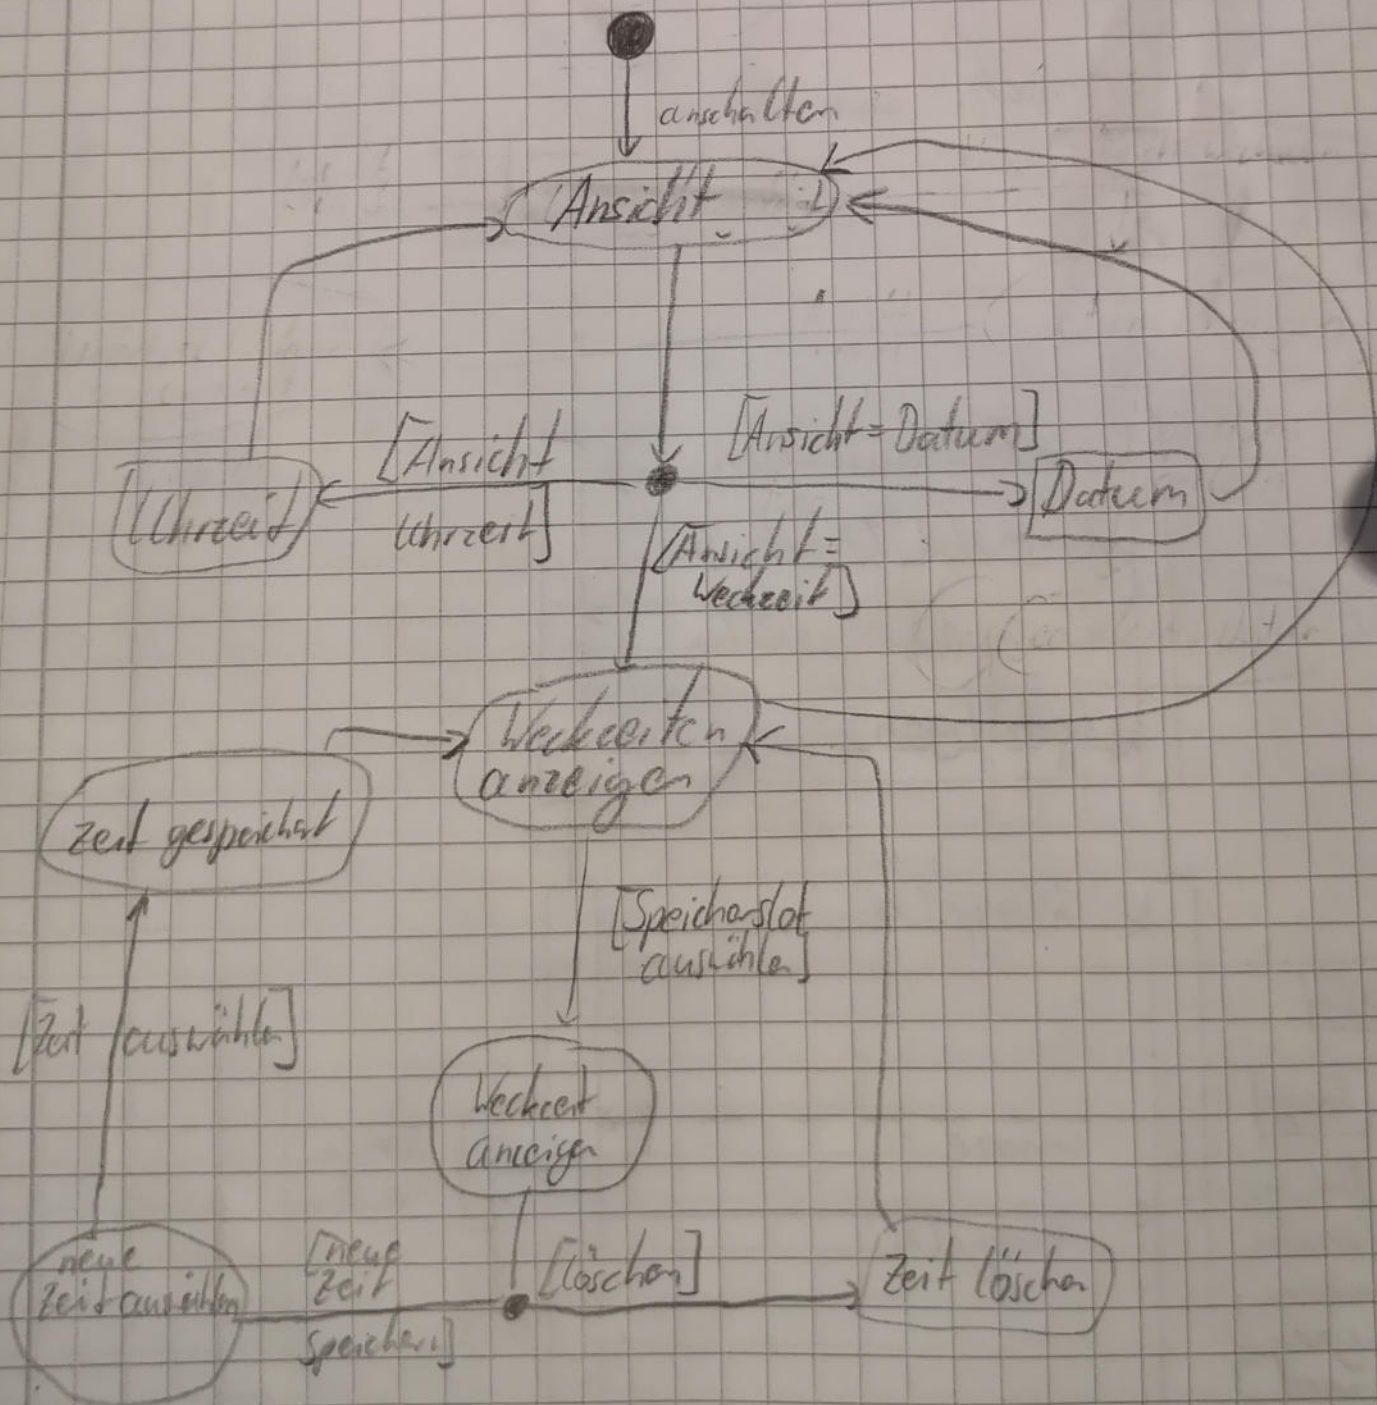 anschalten
Ansicht
[Ansicht
Uhrzeit]
[Ansicht = Datum]
Uhrzeit
Datum
[Ansicht =
Weckzeit]
Weckzeiten
anzeigen
Zeit gespeichert
[Speicherslot
auswählen]
[Zeit auswählen]
Weckzeit
anzeigen
neue
Zeit auswählen
[neue
Zeit
speichern]
[löschen]
Zeit löschen